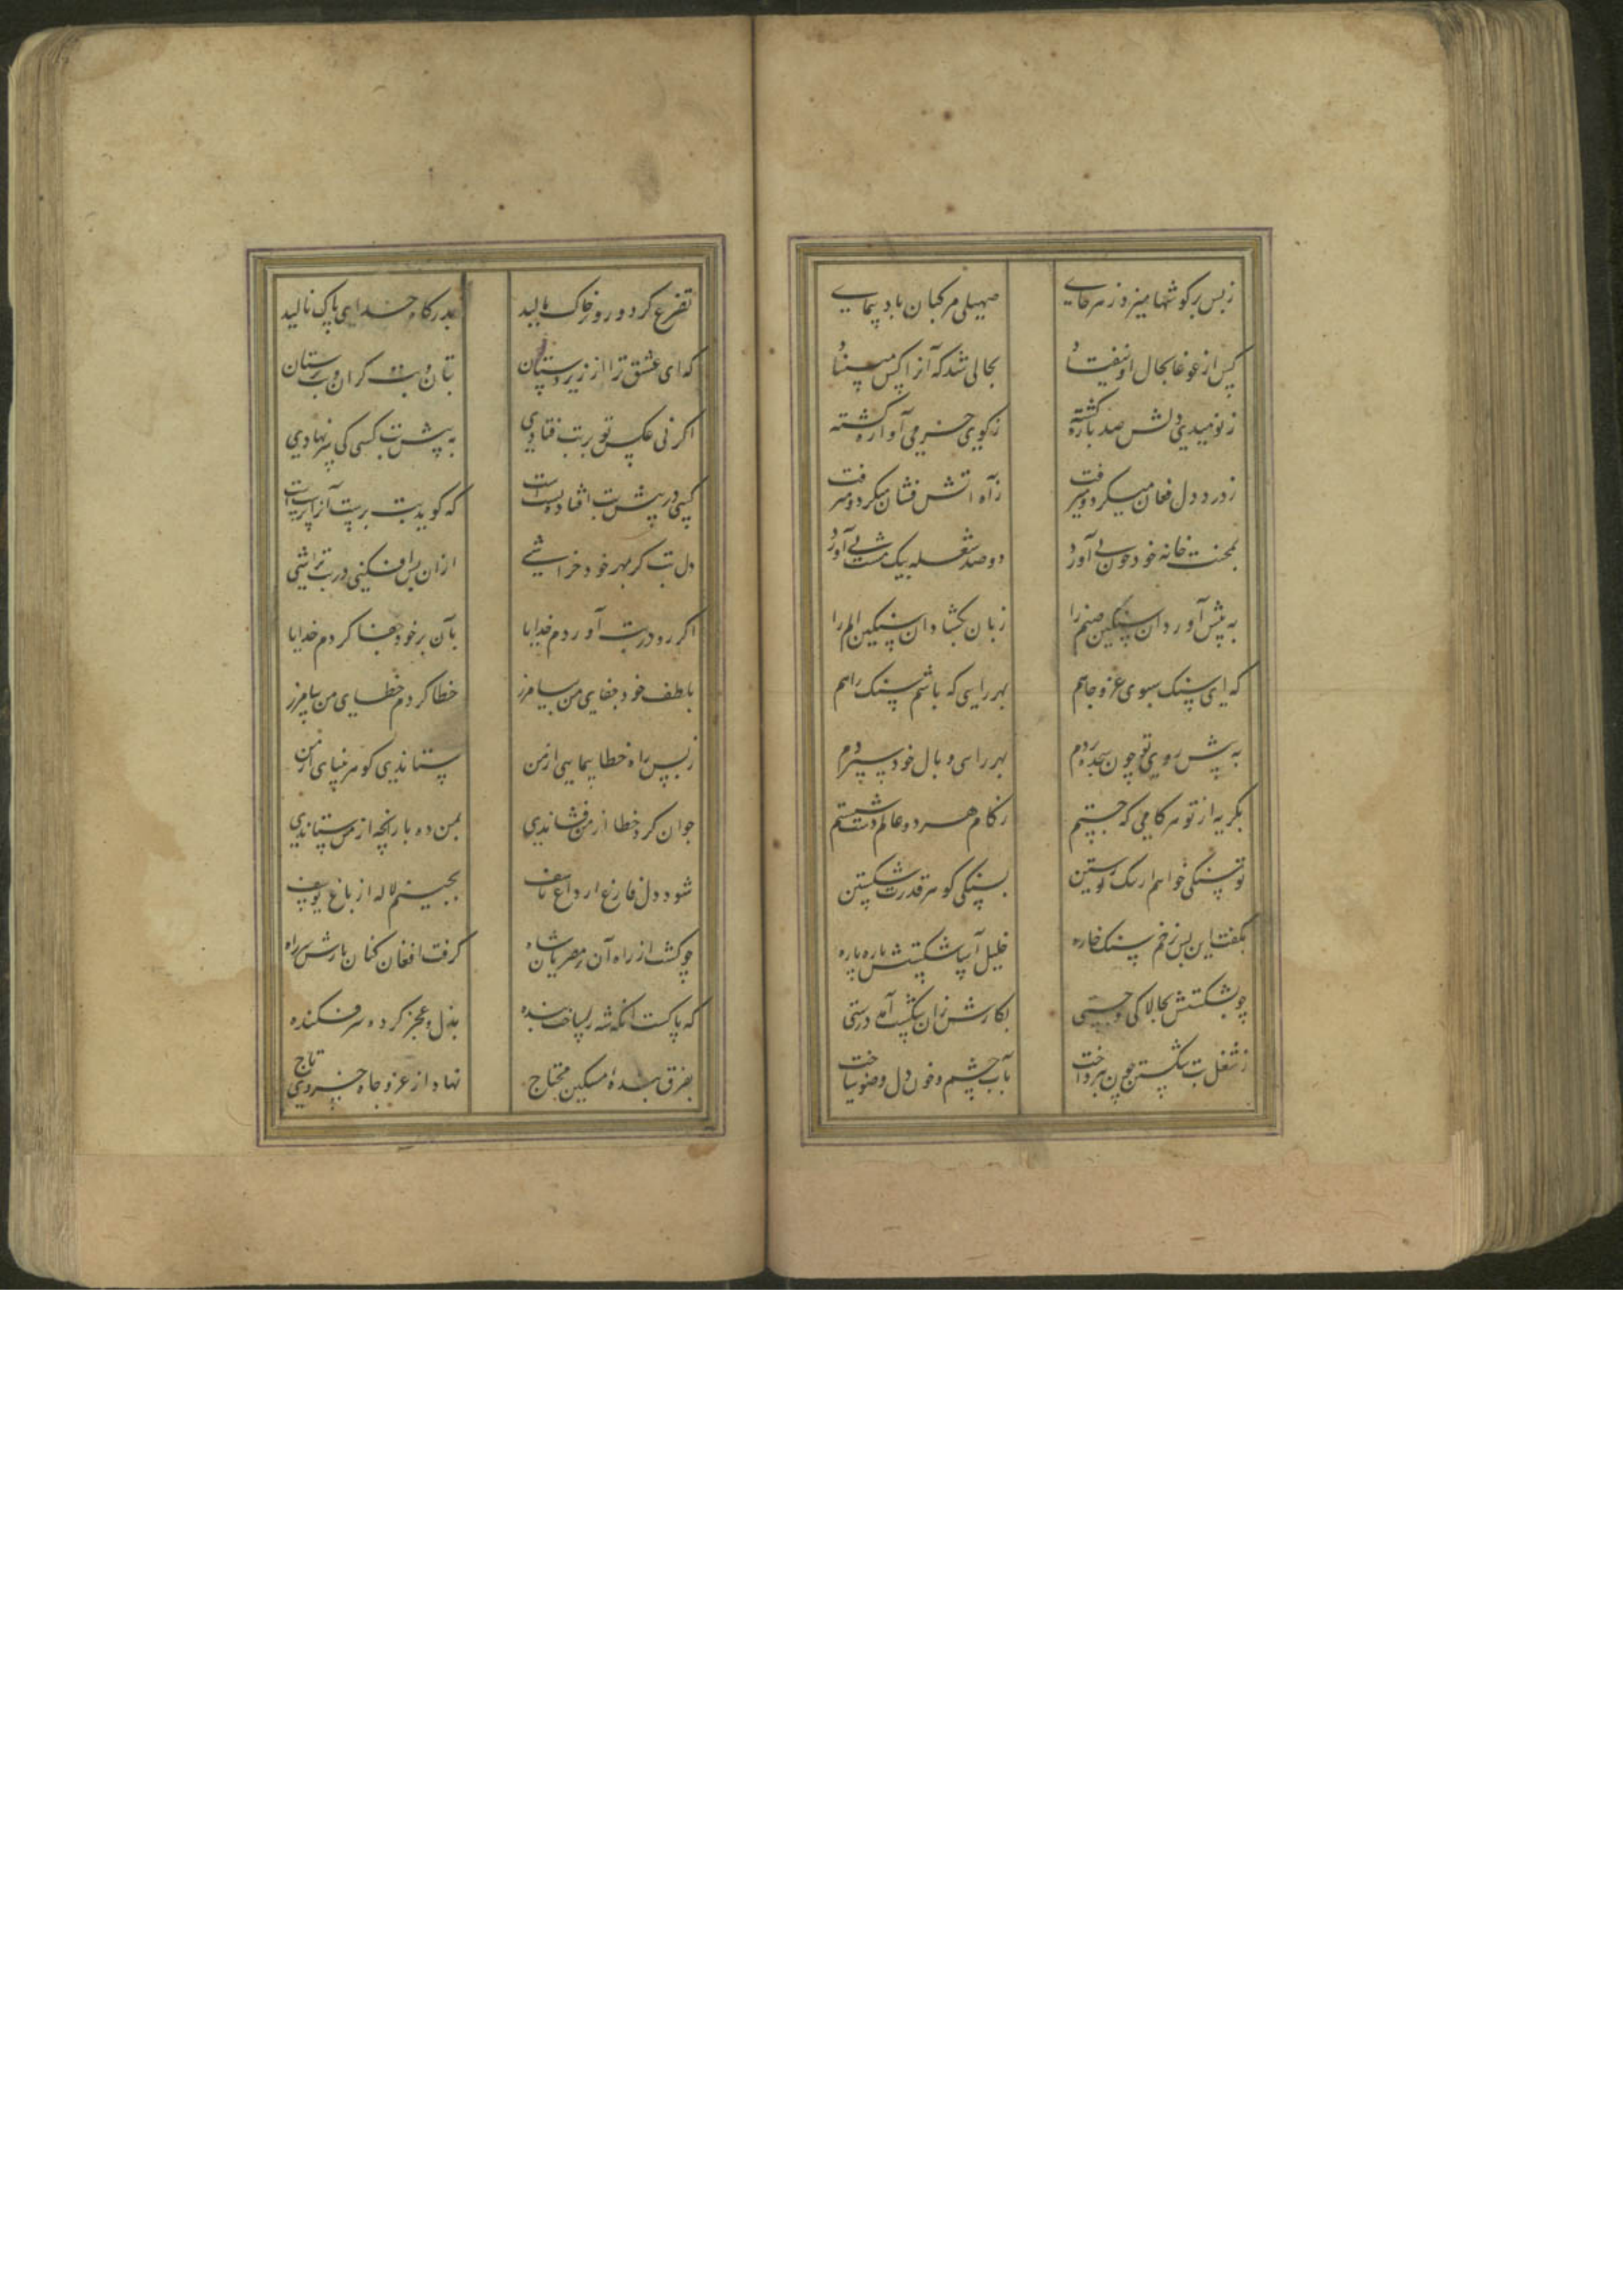 ز بس بر گوشها میزد ز هر جای صهیل مرکبان باد پیمای
کس از غوغا بحال او نیفتاد بحالی شد که آنرا کس مبیناد
ز نومیدی دلش صد پاره گشته ز کوی خرمی آواره گشته
ز درد دل فغان میکرد و میرفت ز آه آتش فشان میکرد و میرفت
بمحنت خانه خود چون پی آورد دو صد شعله بیک مشت نی آورد
به پیش آورد آن سنگین صنم را زبان بگشاد آن سنگین الم را
که ای سنگ سبوی عز و جاهم بهر راهی که باشم سنگ راهم
به پیش روی تو چون سجده بردم بهر راهی وبال خود سپردم
بگریه از تو هر کامی که جستم ز کام هر دو عالم دست شستم
تو سنگی خواهم از ننگ تو رستن بسنگی گوهر قدرت شکستن
بگفت این پس بزخم سنگ خاره خلیل آسا شکستش پاره پاره
چو بشکستش بچالاکی و چستی بکارش زان شکست آمد درستی
ز شغل بت شکستن چون بپرداخت بآب چشم و خون دل وضو ساخت
تضرع کرد و رو بر خاک مالید بدرگاه خدای پاک نالید
که ای عشق ترا از زیر دستان بتان و بت گران و بت پرستان
اگر نی عکس تو بر بت فتادی به پیش بت کسی کی سر نهادی
کسی در پیش بت افتاده پستست که گوید بت پرست آنرا پرستست
دل بت گر بمهر خود خراشی از آن پس افکنی در بت تراشی
اگر رو در بت آوردم خدایا بآن بر خود جفا کردم خدایا
بلطف خود جفای من بیامرز خطا کردم خطای من بیامرز
ز بس راه خطا پیمایی از من ستاندی گوهر بینایی از من
چو آن گرد خطا از من فشاندی بمن ده باز آنچه از من ستاندی
شود دل فارغ از داغ تاسف بچینم لاله از باغ یوسف
چو گشت از راه آن مصریان شاه گرفت افغان کنان بازش سر راه
که پاکست آنکه شه را ساخت بنده بذل و عجز کرده سرفکنده
بفرق بنده مسکین محتاج نهاد از عز و جاه خسروی تاج